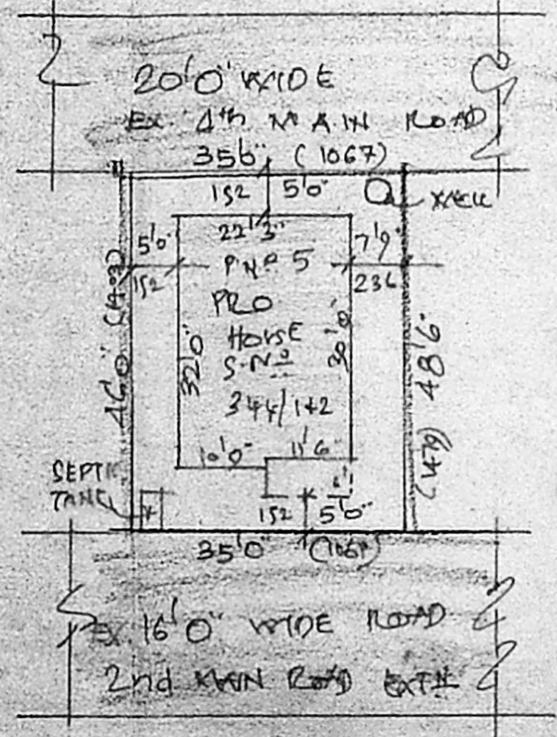 20'0" WIDE
Ex. 4th MAIN ROAD
35'0" (1067)
152 5'0"
WELL
22'3"
5'0"
7'9"
152
236
P.Nº 5
PRO
HOUSE
S.Nº
344/1+2
46'0"
32'0"
30'0"
48'6"
(1479)
10'0" 11'6"
SEPTIC
TANK
152 5'0"
35'0" (1067)
Ex. 16'0" WIDE ROAD
2nd MAIN ROAD EXTN